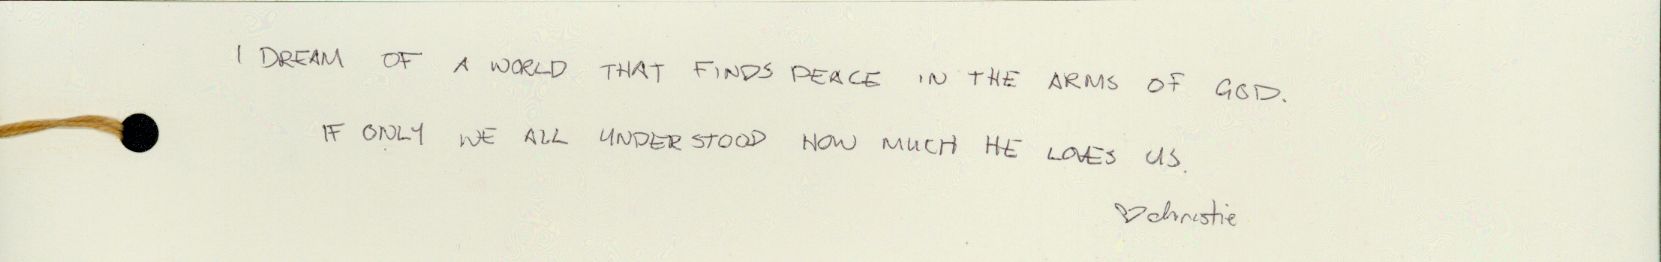 I DREAM OF A WORLD THAT FINDS PEACE IN THE ARMS OF GOD.
IF ONLY WE ALL UNDERSTOOD HOW MUCH HE LOVES US.
♡christie